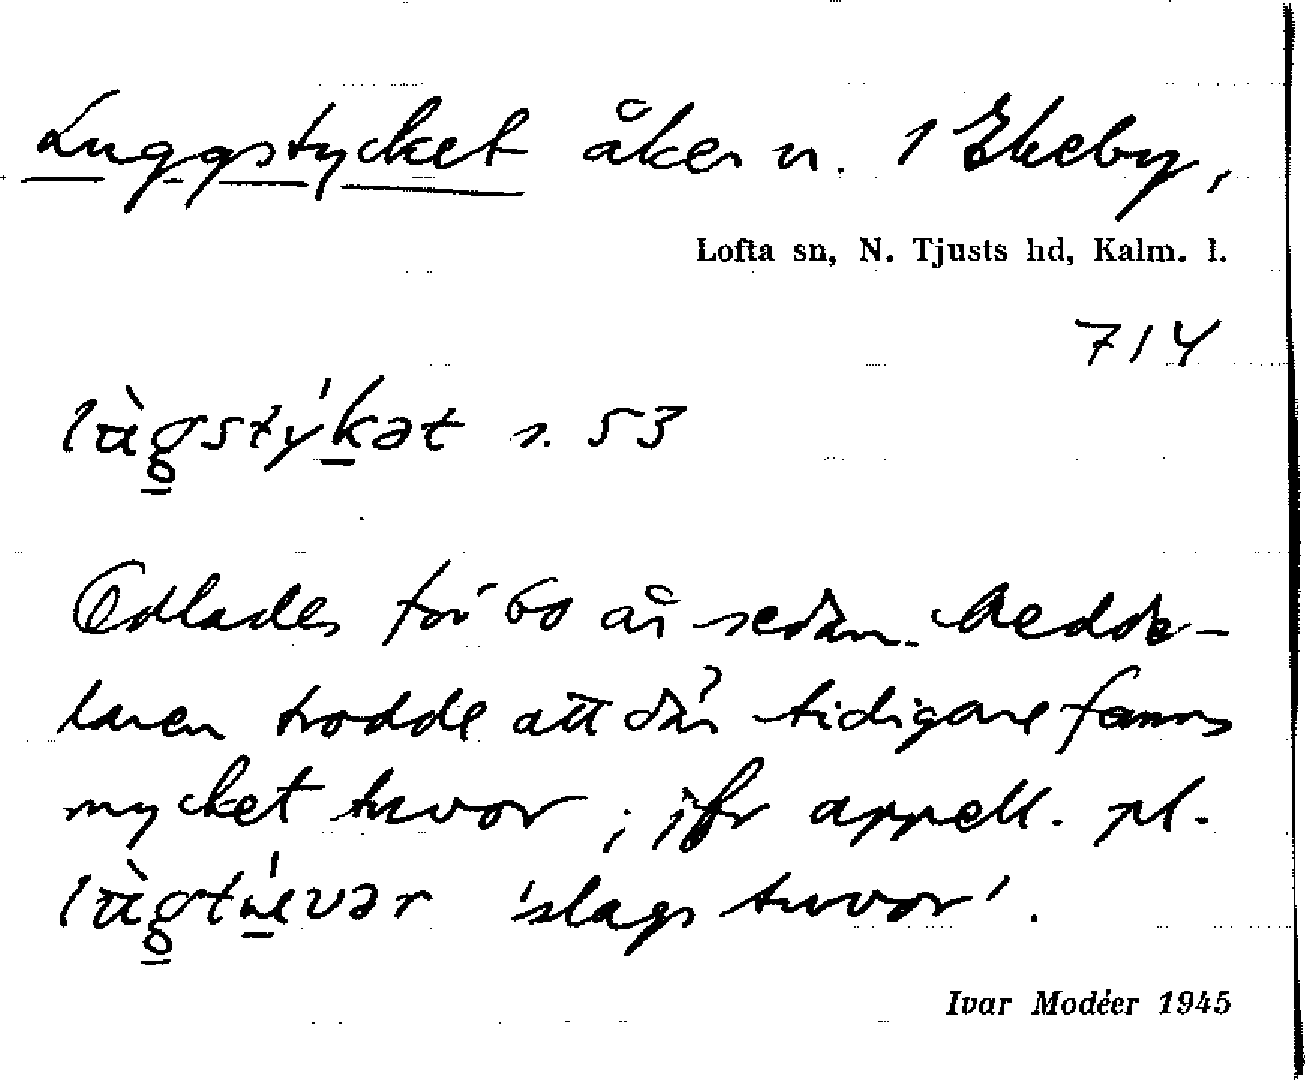 Luggstycket åker n. 1 Ekeby,
Lofta sn, N. Tjusts hd, Kalm. l.
714
s. 53
Odlades för 60 år sedan. Medde-
laren trodde att där tidigare fanns
mycket tuvor; jfr appell. pl.
'slags tuvor'.
Ivar Modéer 1945